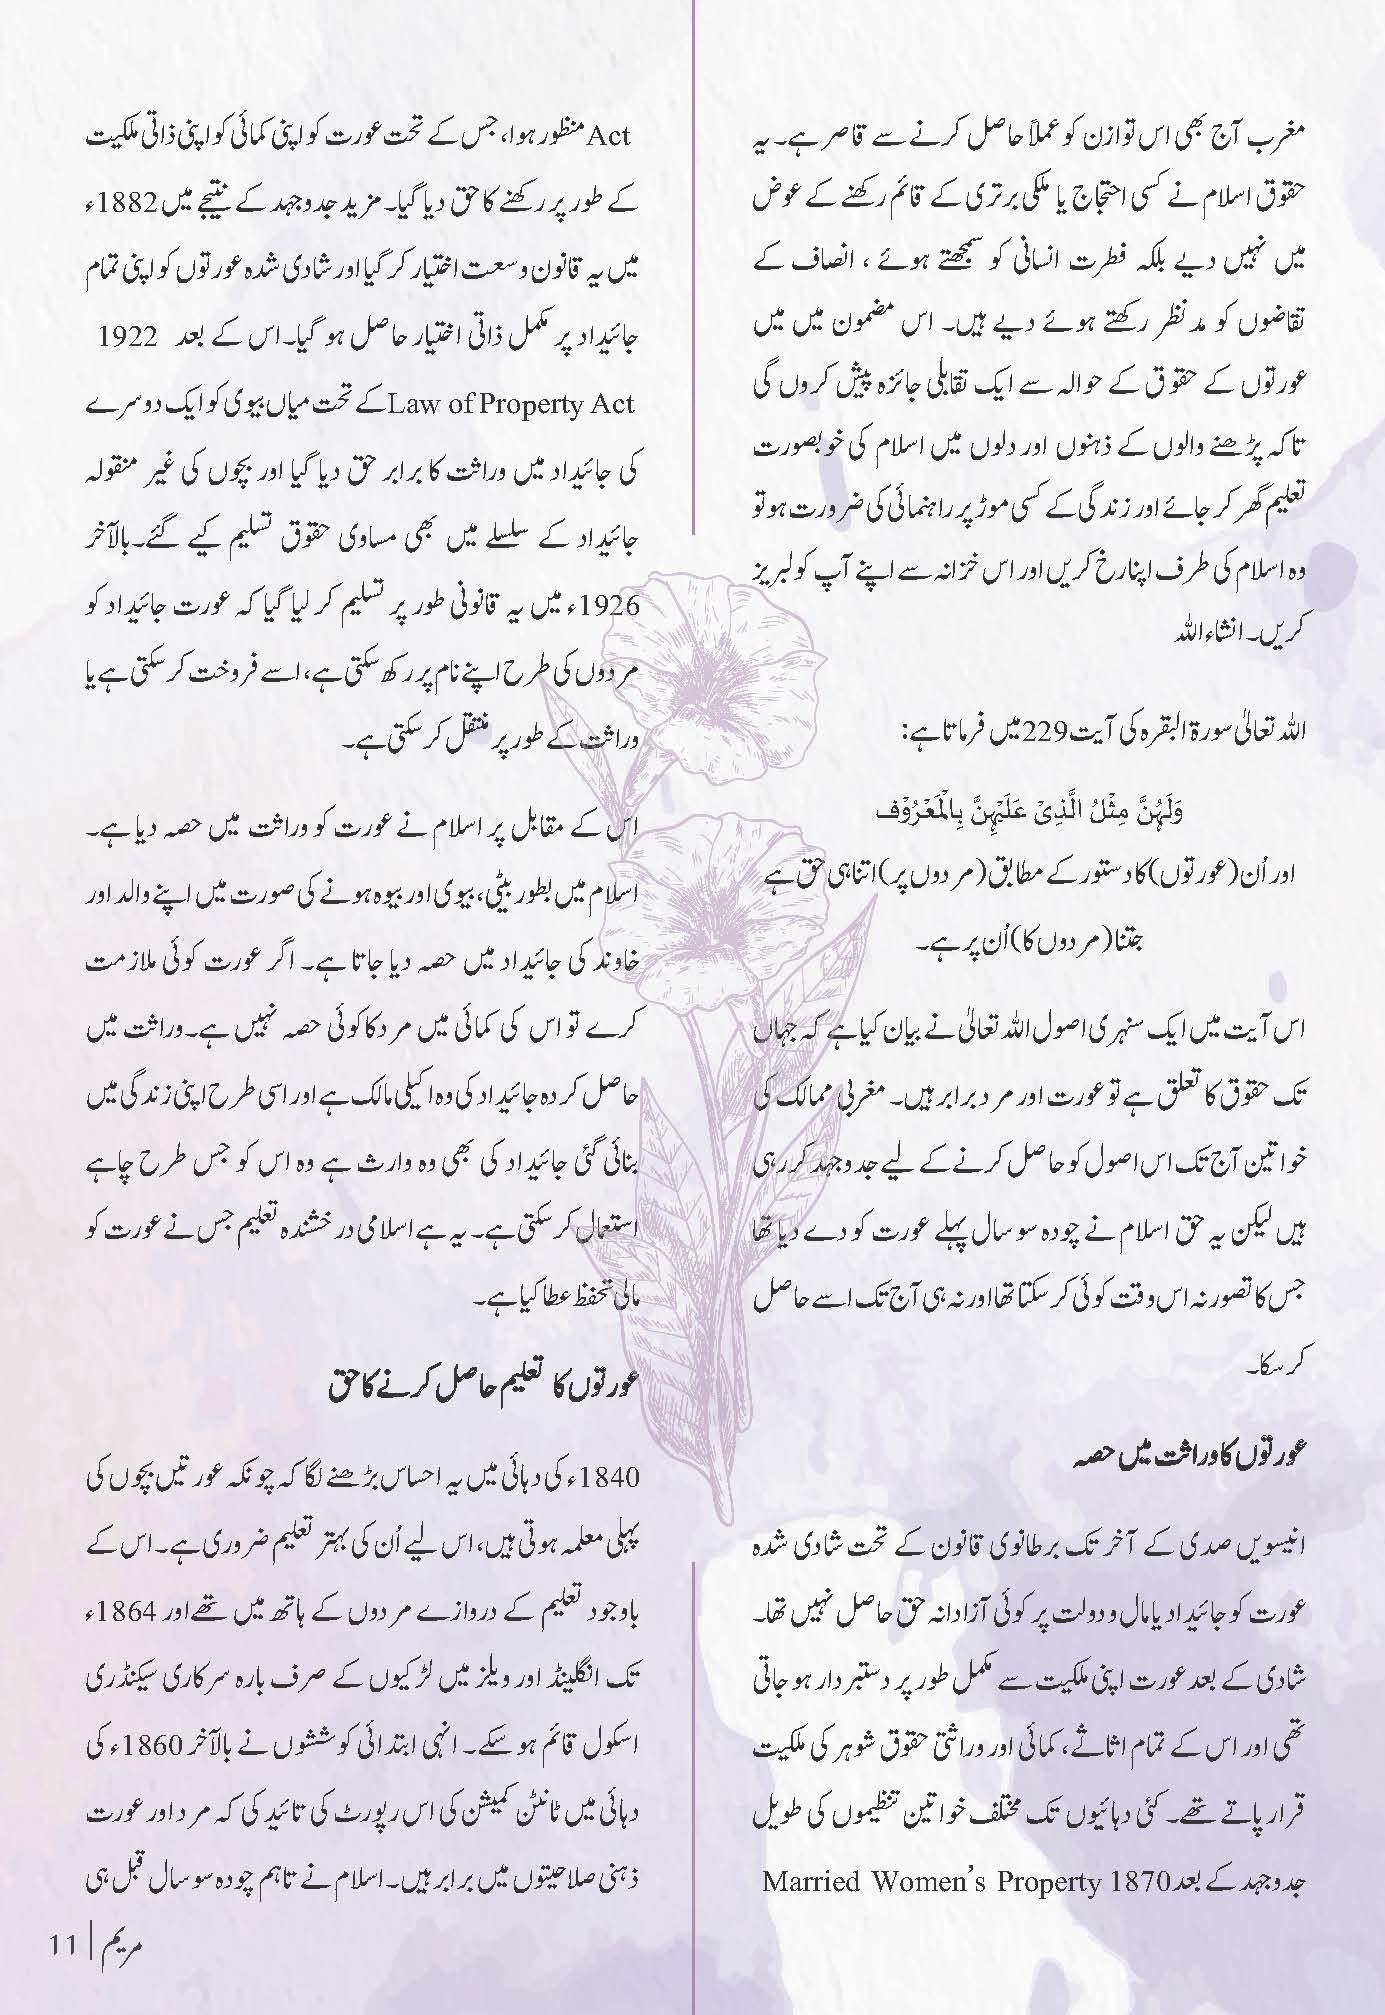 مغرب آج بھی اس توازن کو عملاً حاصل کرنے سے قاصر ہے۔ یہ
حقوق اسلام نے کسی احتجاج یا ملکی برتری کے قائم رکھنے کے عوض
میں نہیں دیے بلکہ فطرت انسانی کو سمجھتے ہوئے ، انصاف کے
تقاضوں کو مد نظر رکھتے ہوئے دیے ہیں۔ اس مضمون میں میں
عورتوں کے حقوق کے حوالہ سے ایک تقابلی جائزہ پیش کروں گی
تاکہ پڑھنے والوں کے ذہنوں اور دلوں میں اسلام کی خوبصورت
تعلیم گھر کر جائے اور زندگی کے کسی موڑ پر راہنمائی کی ضرورت ہو تو
وہ اسلام کی طرف اپنا رخ کریں اور اس خزانہ سے اپنے آپ کو لبریز
کریں۔ انشاء اللہ
اللہ تعالیٰ سورۃ البقرہ کی آیت 229 میں فرماتا ہے:
وَلَہُنَّ مِثْلُ الَّذِیْ عَلَیْہِنَّ بِالْمَعْرُوْف
اور اُن (عورتوں) کا دستور کے مطابق (مردوں پر) اتنا ہی حق ہے
جتنا (مردوں کا) اُن پر ہے۔
اس آیت میں ایک سنہری اصول اللہ تعالیٰ نے بیان کیا ہے کہ جہاں
تک حقوق کا تعلق ہے تو عورت اور مرد برابر ہیں۔ مغربی ممالک کی
خواتین آج تک اس اصول کو حاصل کرنے کے لیے جدوجہد کر رہی
ہیں لیکن یہ حق اسلام نے چودہ سو سال پہلے عورت کو دے دیا تھا
جس کا تصور نہ اس وقت کوئی کر سکتا تھا اور نہ ہی آج تک اسے حاصل
کر سکا۔
عورتوں کا وراثت میں حصہ
انیسویں صدی کے آخر تک برطانوی قانون کے تحت شادی شدہ
عورت کو جائیداد یا مال و دولت پر کوئی آزادانہ حق حاصل نہیں تھا۔
شادی کے بعد عورت اپنی ملکیت سے مکمل طور پر دستبردار ہو جاتی
تھی اور اس کے تمام اثاثے، کمائی اور وراثتی حقوق شوہر کی ملکیت
قرار پاتے تھے۔ کئی دہائیوں تک مختلف خواتین تنظیموں کی طویل
جدوجہد کے بعد 1870 Married Women’s Property
Act منظور ہوا، جس کے تحت عورت کو اپنی کمائی کو اپنی ذاتی ملکیت
کے طور پر رکھنے کا حق دیا گیا۔ مزید جدوجہد کے نتیجے میں 1882ء
میں یہ قانون وسعت اختیار کر گیا اور شادی شدہ عورتوں کو اپنی تمام
جائیداد پر مکمل ذاتی اختیار حاصل ہو گیا۔ اس کے بعد 1922
Law of Property Act کے تحت میاں بیوی کو ایک دوسرے
کی جائیداد میں وراثت کا برابر حق دیا گیا اور بچوں کی غیر منقولہ
جائیداد کے سلسلے میں بھی مساوی حقوق تسلیم کیے گئے۔ بالآخر
1926ء میں یہ قانونی طور پر تسلیم کر لیا گیا کہ عورت جائیداد کو
مردوں کی طرح اپنے نام پر رکھ سکتی ہے، اسے فروخت کر سکتی ہے یا
وراثت کے طور پر منتقل کر سکتی ہے۔
اس کے مقابل پر اسلام نے عورت کو وراثت میں حصہ دیا ہے۔
اسلام میں بطور بیٹی، بیوی اور بیوہ ہونے کی صورت میں اپنے والد اور
خاوند کی جائیداد میں حصہ دیا جاتا ہے۔ اگر عورت کوئی ملازمت
کرے تو اس کی کمائی میں مرد کا کوئی حصہ نہیں ہے۔ وراثت میں
حاصل کردہ جائیداد کی وہ اکیلی مالک ہے اور اسی طرح اپنی زندگی میں
بنائی گئی جائیداد کی بھی وہ وارث ہے وہ اس کو جس طرح چاہے
استعمال کر سکتی ہے۔ یہ ہے اسلامی درخشندہ تعلیم جس نے عورت کو
مالی تحفظ عطا کیا ہے۔
عورتوں کا تعلیم حاصل کرنے کا حق
1840ء کی دہائی میں یہ احساس بڑھنے لگا کہ چونکہ عورتیں بچوں کی
پہلی معلمہ ہوتی ہیں، اس لیے اُن کی بہتر تعلیم ضروری ہے۔ اس کے
باوجود تعلیم کے دروازے مردوں کے ہاتھ میں تھے اور 1864ء
تک انگلینڈ اور ویلز میں لڑکیوں کے صرف بارہ سرکاری سیکنڈری
اسکول قائم ہو سکے۔ انہی ابتدائی کوششوں نے بالآخر 1860ء کی
دہائی میں ٹانٹن کمیشن کی اس رپورٹ کی تائید کی کہ مرد اور عورت
ذہنی صلاحیتوں میں برابر ہیں۔ اسلام نے تاہم چودہ سو سال قبل ہی
مریم | 11